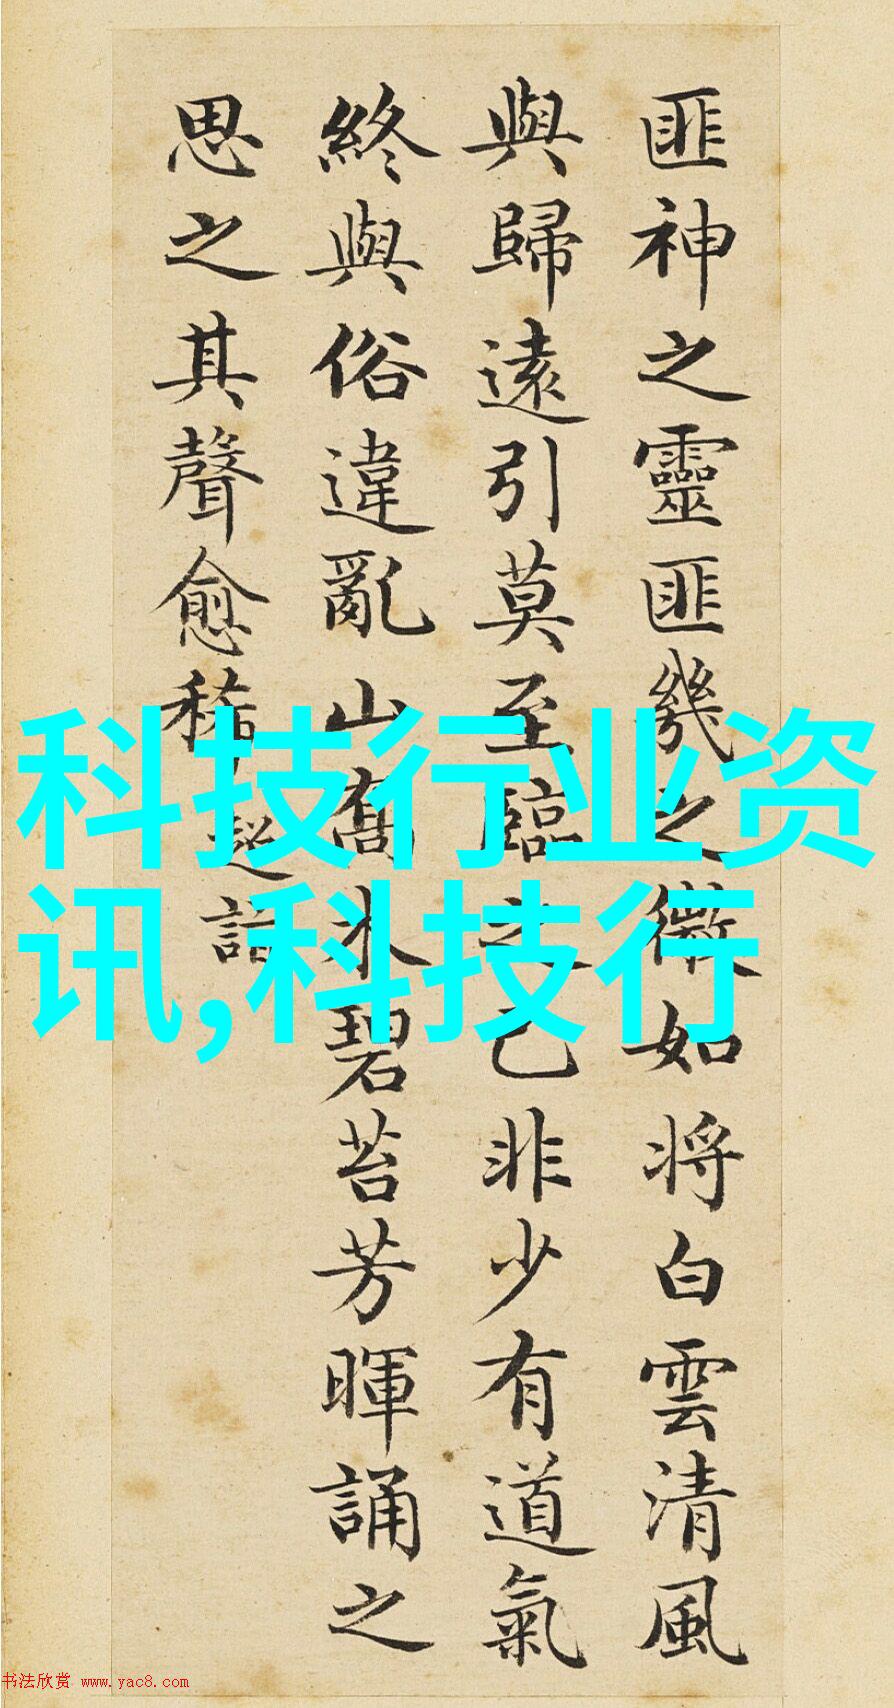 匪神之靈匪幾之微如將白雲清風
與歸遠引莫至臨之已非少有道氣
終與俗違亂山高木碧苔芳暉誦之
思之其聲愈稀超詣
科技行业资
讯,科技行
书法欣赏 www.yac8.com